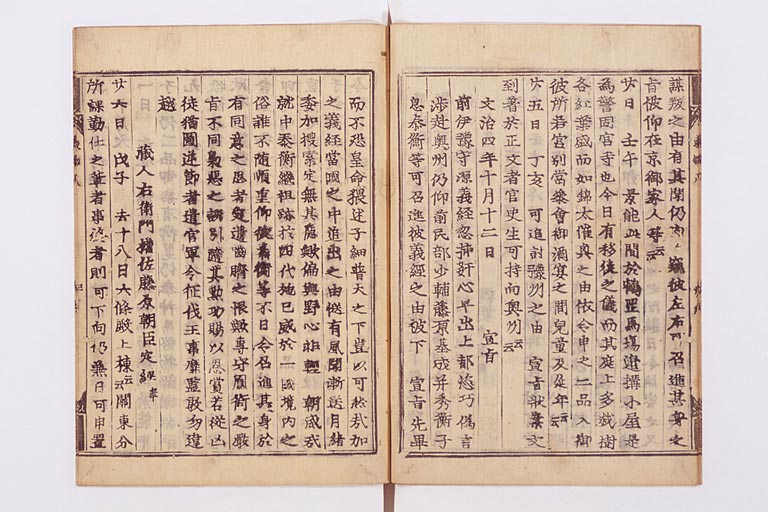 謀叛之由有其聞仍窺彼左右可召進其身之
旨被仰在京御家人等云々
廿日　壬午　景能此間於鶴岡馬場邊構小屋是
為警固宮寺也今日有移徙之儀而其庭上多栽樹
各紅葉盛而如錦太催興之由依令申之二品入御
彼所若宮別當參會御酒宴之間兒童及延年云々
廿五日　丁亥　可追討豫州之由　宣旨狀案文
到著於正文者官史生可持向奥州云々
文治四年十月十二日　　宣旨
前伊豫守源義經忽挿奸心早出上都恣巧僞言
渉赴奥州仍仰前民部少輔藤原基成并秀衡子
息泰衡等可召進彼義經之由被下　宣旨先畢
今而不恐皇命猥述子細普天之下豈以可然哉加
之義經當國之中進出之由恢有風聞漸送月緒
委加搜索定無其隱歟偏與野心非輕朝威哉
就中泰衡繼祖跡於四代施已威於一國境内之
俗誰不隨順重仰彼泰衡等不日令召進其身於
有同意之思者定遺噬臍之恨歟專守鳳銜之嚴
旨不同梟惡之誘引隨其勲功賜以恩賞若從凶
徒猶圖逆節者遣官軍令征伐王事靡盬敢勿違
越
藏人右衛門權佐藤原朝臣定經奉
廿六日　戊子　去十八日六條殿上棟云々關東分
所課勤仕之輩者事終者則可下向仍兼日可申置